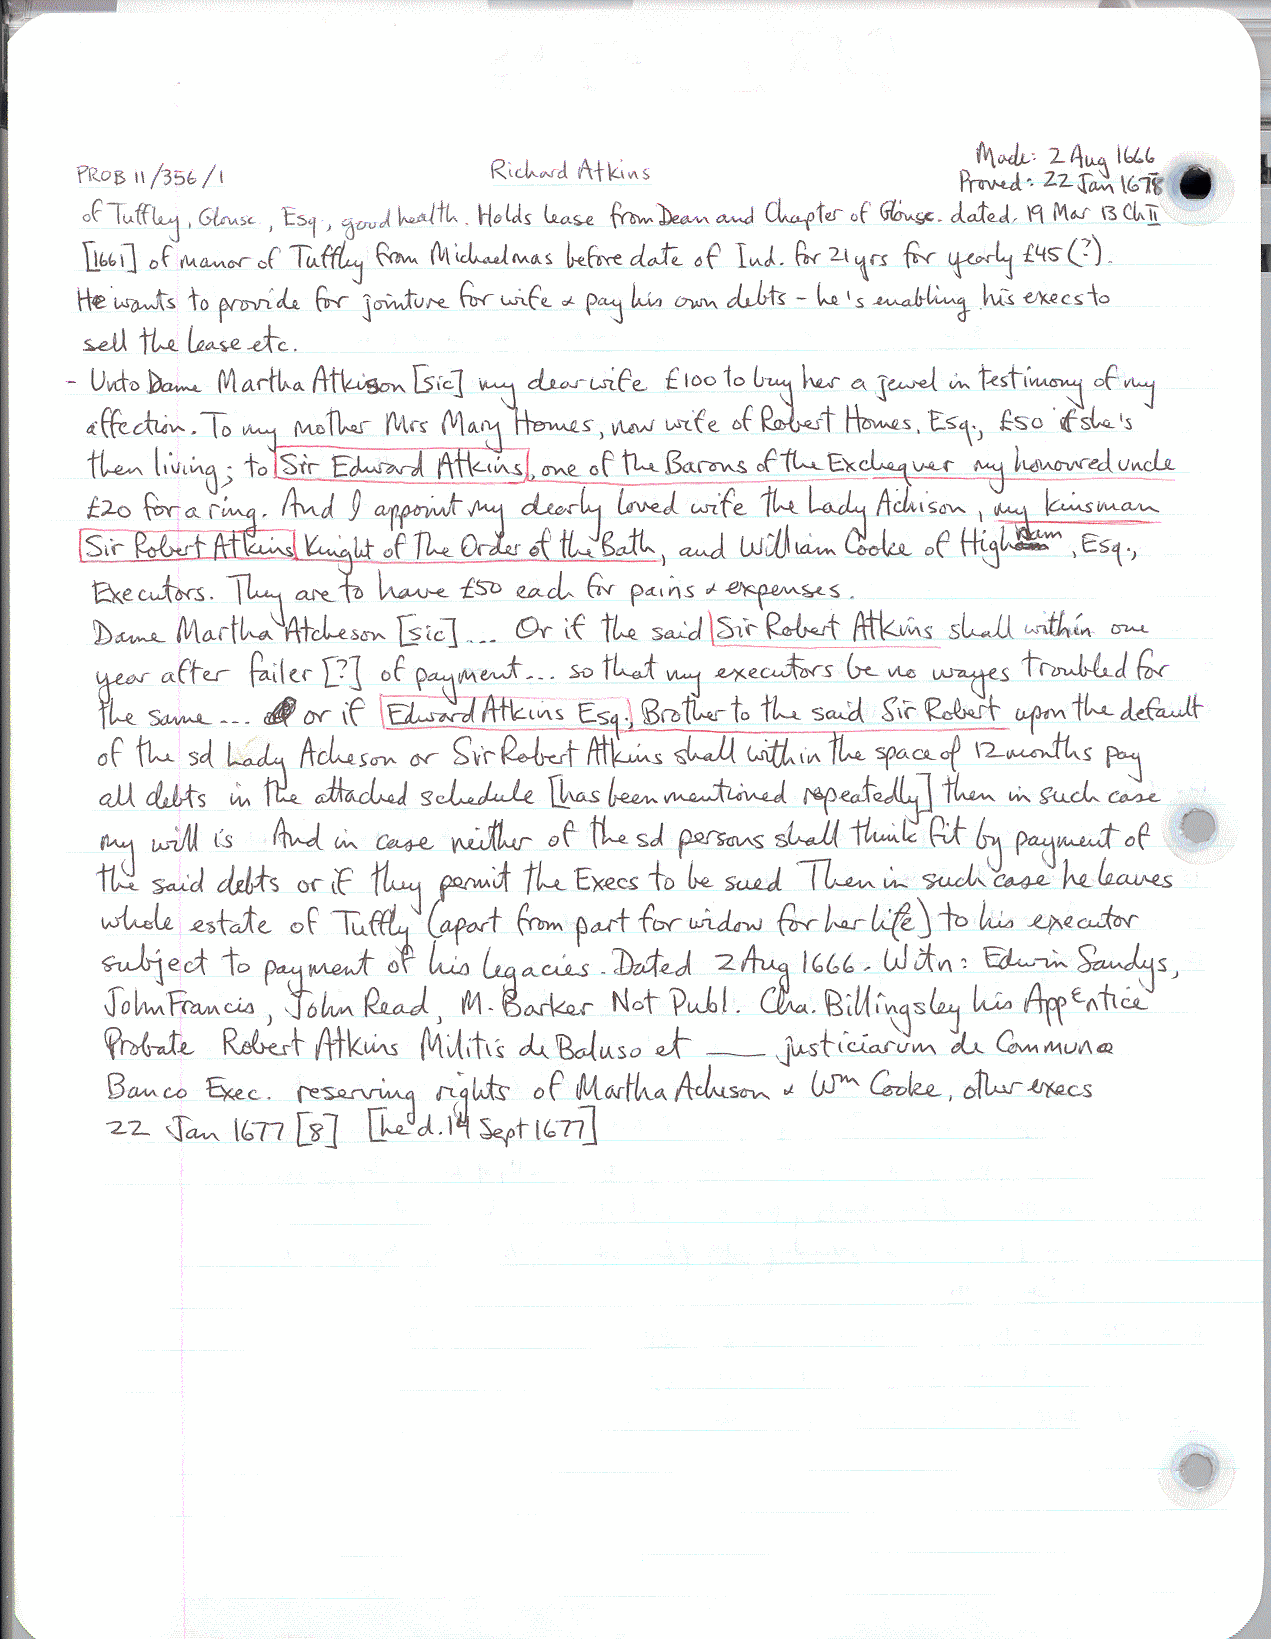 PROB 11/356/1
Richard Atkins
Made: 2 Aug 1666
Proved: 22 Jan 1678
of Tuffley, Glouse., Esq., good health. Holds lease from Dean and Chapter of Glouse. dated. 19 Mar 13 Ch II
[1661] of manor of Tuffley from Michaelmas before date of Ind. for 21 yrs for yearly £45 (?).
He wants to provide for jointure for wife & pay his own debts - he's enabling his execs to
sell the lease etc.
- Unto Dame Martha Atkison [sic] my dear wife £100 to buy her a jewel in testimony of my
affection. To my mother Mrs Mary Homes, now wife of Robert Homes, Esq., £50 if she's
then living; to Sir Edward Atkins, one of the Barons of the Exchequer my honoured uncle
£20 for a ring. And I appoint my dearly loved wife the Lady Achison, my kinsman
Sir Robert Atkins Knight of The Order of the Bath, and William Cooke of Highnam, Esq.,
Executors. They are to have £50 each for pains & expenses.
Dame Martha Atcheson [sic] ... Or if the said Sir Robert Atkins shall within one
year after failer [?] of payment... so that my executors be no wayes troubled for
the same... or if Edward Atkins Esq., Brother to the said Sir Robert upon the default
of the sd Lady Acheson or Sir Robert Atkins shall within the space of 12 months pay
all debts in the attached schedule [has been mentioned repeatedly] then in such case
my will is And in case neither of the sd persons shall think fit by payment of
the said debts or if they permit the Execs to be sued Then in such case he leaves
whole estate of Tuffly (apart from part for widow for her life) to his executor
subject to payment of his legacies. Dated 2 Aug 1666. Witn: Edwin Sandys,
John Francis, John Read, M. Barker Not Publ. Cha. Billingsley his Apprentice
Probate Robert Atkins Militis de Baluso et ___ justiciarum de Commune
Banco Exec. reserving rights of Martha Achison & Wm Cooke, other execs
22 Jan 1677 [8] [he d. 14 Sept 1677]